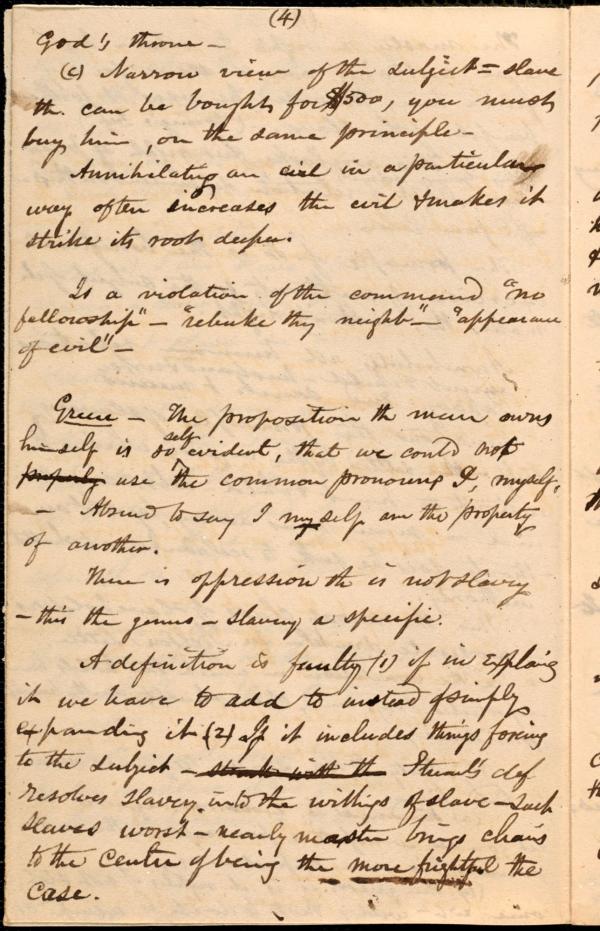 (4)
God's throne —
(c) Narrow view of the subject = slave
th. can be bought for $500, you must
buy him, on the same principle —
Annihilating an evil in a particular
way often increases the evil & makes it
strike its root deeper.
Is a violation of the command "no
fellowship" — "rebuke thy neighb" — "appearance
of evil" —
Green — The proposition th man owns
himself is so self evident, that we could not
properly use the common pronouns I, myself,
— Absurd to say I myself am the property
of another.
There is oppression th is not slavery
— this the genus — slavery a specific.
A definition is faulty (1) if in explaing
it we have to add to instead of simply
expanding it (2) If it includes things foreing
to the subject — struck with th def
resolves slavery into the willings of slave — such
slaves worst — nearly master brings chains
to the centre of being the more frightful the
case.